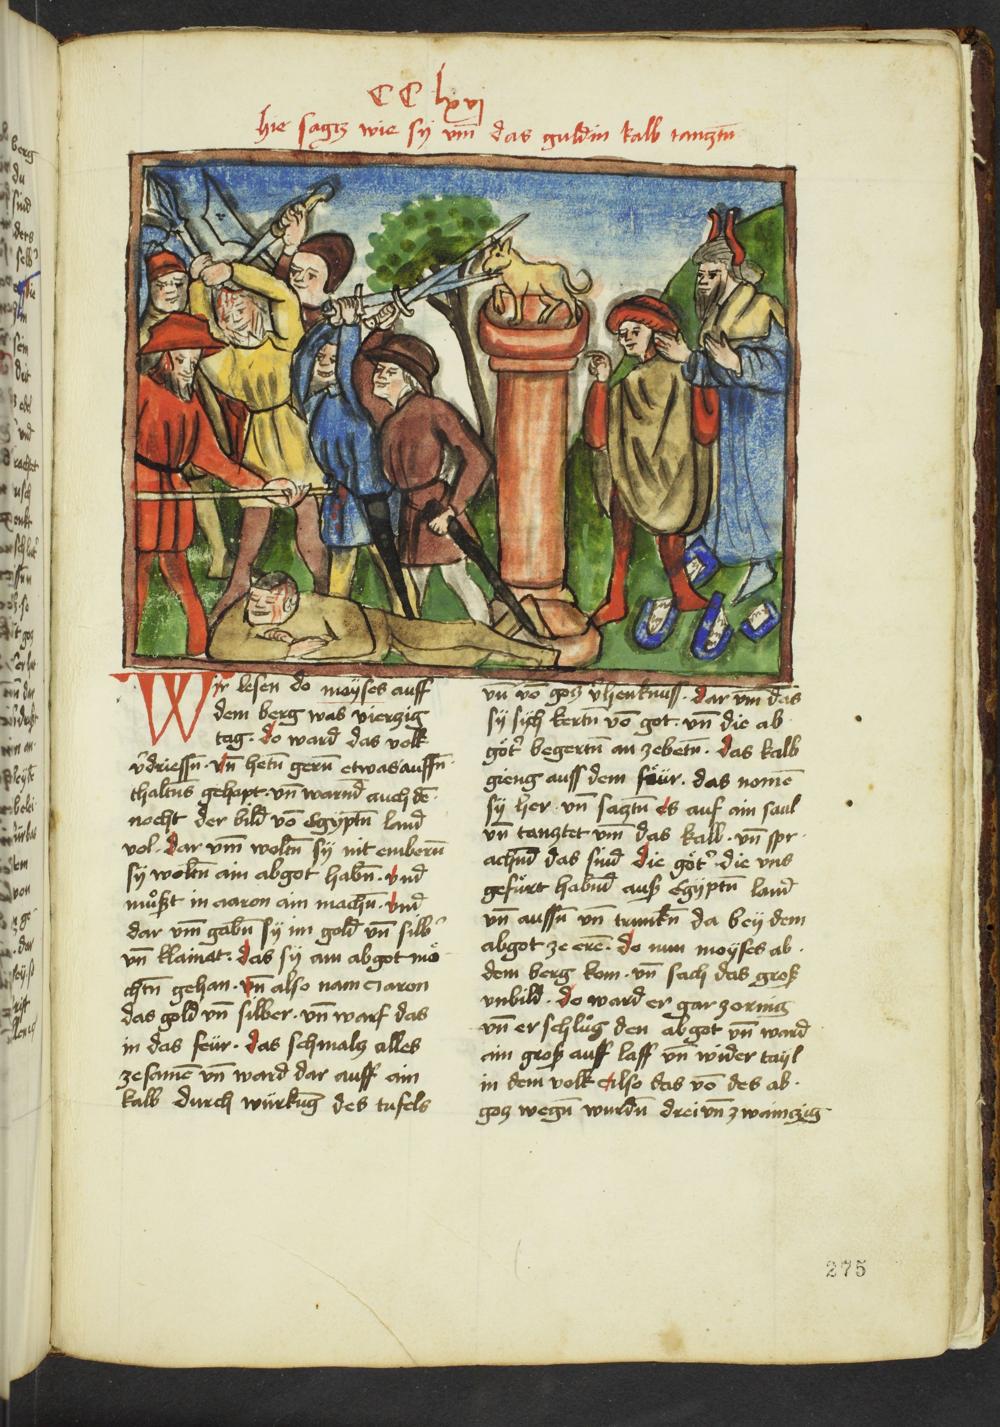 CC lxvj
hie sagtz wie sy vm̄ das guldin kalb tanztn̄
Wir lesen do moyses auff
dem berg was vierzig
tag. do ward das volk
v̄driessn̄. vn̄ hetn̄ gern̄ etwas auffn̄
thaltus gehapt. vn̄ warnd auch de᷑
nocht der bild vo᷑ Egyptn̄ land
vol. dar vm̄ woltn̄ sy nit embern̄
sy woltn̄ ain abgot habn̄. vnd
muͦst in aaron ain machn̄. vnd
dar vm̄ gabn̄ sy im gold vn̄ silb᷑
vn̄ klainat. das sy ain abgot moͤ
chtn̄ gehan. vn̄ also nam aaron
das gold vn̄ silber. vn̄ warf das
in das feür. das schmaltz alles
zesame᷑ vn̄ ward dar auff ain
kalb durch würkūg des tufels
vn̄ vo᷑ gotz v̄henknuss. dar vm̄ das
sy sich kertn̄ vo᷑ got. vn̄ die ab
göt᷑ begertn̄ an zebetn̄. das kalb
gieng auss dem föür. das nome᷑
sy her. vn̄ saztn̄ es auf ain saul
vn̄ tanztet vm̄ das kalb. vn̄ spr
achnd das sind die göt᷑. die vns
gefürt habnd auß Egyptn̄ land
vn̄ aussn̄ vn̄ trunkn̄ da bey dem
abgot ze ere᷑. do nun moyses ab
dem berg kom. vn̄ sach das groß
vnbild. do ward er gar zornig
vn̄ er schluͦg den abgot vn̄ ward
ain groß auff lauff vn̄ wider tayl
in dem volk also das vo᷑ des ab
gotz wegn̄ wurdn̄ drei vn̄ zwainzig
275